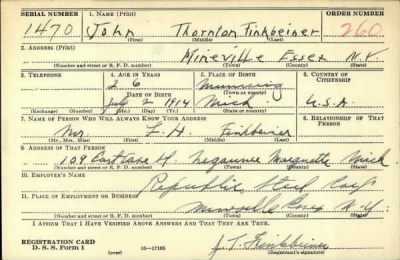 SERIAL NUMBER 1. NAME (Print) ORDER NUMBER
1470 John Thornton Finkbeiner 260
(First) (Middle) (Last)
2. ADDRESS (Print)
Mineville Essex N.Y.
(Number and street or R. F. D. number) (Town) (County) (State)
3. TELEPHONE 4. AGE IN YEARS 5. PLACE OF BIRTH 6. COUNTRY OF CITIZENSHIP
26 Munising
DATE OF BIRTH (Town or county)
July 2 1914 Mich. U.S.A.
(Exchange) (Number) (Mo.) (Day) (Yr.) (State or country)
7. NAME OF PERSON WHO WILL ALWAYS KNOW YOUR ADDRESS 8. RELATIONSHIP OF THAT PERSON
Mrs. Finkbeiner
(Mr., Mrs., Miss) (First) (Middle) (Last)
9. ADDRESS OF THAT PERSON
109 Negaunee Marquette Mich
(Number and street or R. F. D. number) (Town) (County) (State)
10. EMPLOYER'S NAME
Republic Steel Corp
11. PLACE OF EMPLOYMENT OR BUSINESS
Mineville Essex N.Y.
(Number and street or R. F. D. number) (Town) (County) (State)
I AFFIRM THAT I HAVE VERIFIED ABOVE ANSWERS AND THAT THEY ARE TRUE.
REGISTRATION CARD J. T. Finkbeiner
D. S. S. Form 1 (over) 16—17105 (Registrant's signature)